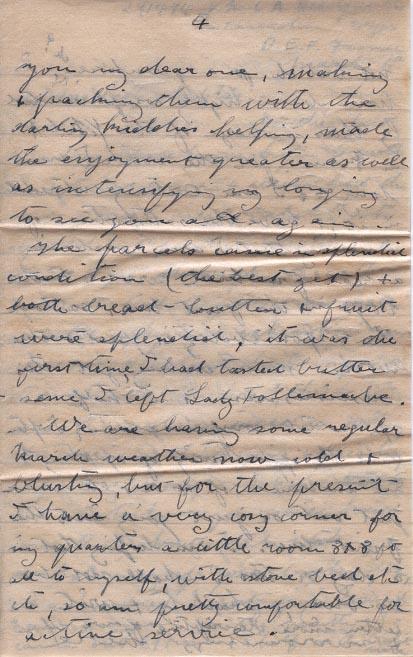 4
you my dear one, making
& packing them with the
darling kiddies helping, made
the enjoyment greater as well
as intensifying my longing
to see you all again.
The parcels came in splendid
condition (the best yet) &
both bread - butter & fruit
were splendid, it was the
first time I had tasted butter
since I left Lady Tollemache.
We are having some regular
March weather now cold &
blusty, but for the present
I have a very cosy corner for
my quarters a little room 8x8 to
all to myself, with stove bed etc
etc, so am pretty comfortable for
active service.